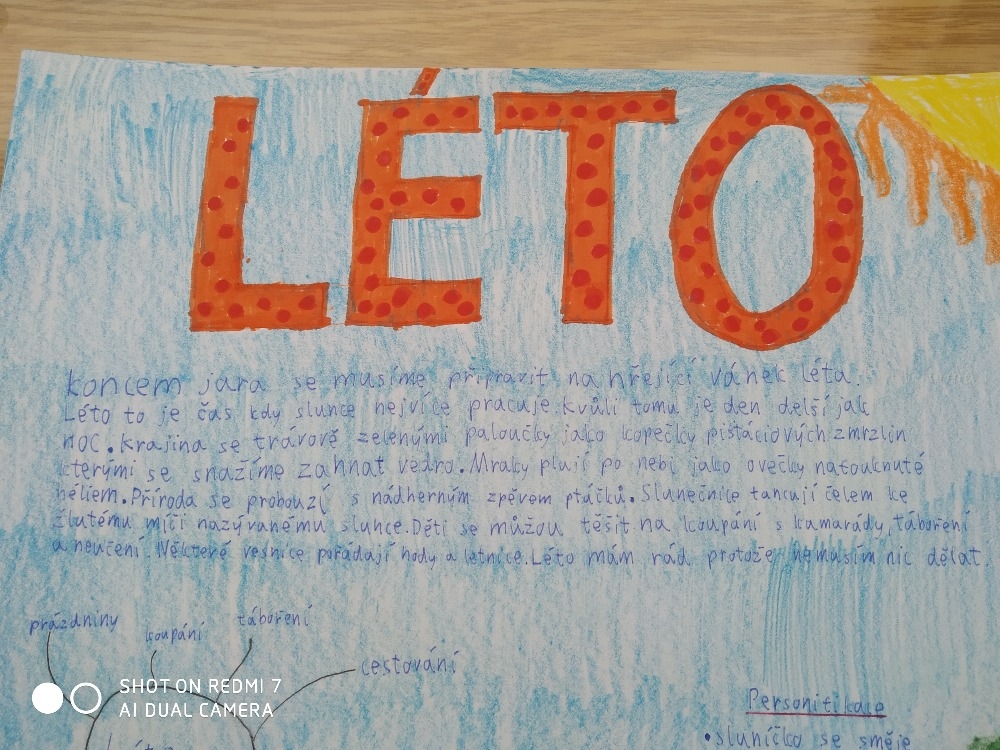 LÉTO
koncem jara se musíme připravit na hřející vánek léta.
Léto to je čas kdy slunce nejvíce pracuje. kvůli tomu je den delší jak
noc. Krajina se trávově zelenými paloučky jako kopečky pistáciových zmrzlin
kterými se snažíme zahnat vedro. Mraky plují po nebi jako ovečky nafouknuté
héliem. Příroda se probouzí s nádherným zpěvem ptáčků. Slunečnice tancují čelem ke
žlutému míči nazývanému slunce. Děti se můžou těšit na koupání s kamarády, táboření
a neučení. Některé vesnice pořádají hody a letnice. Léto mám rád protože nemusím nic dělat.
prázdniny koupání táboření
cestování
Personifikace
•sluníčko se směje
Léto
SHOT ON REDMI 7
AI DUAL CAMERA